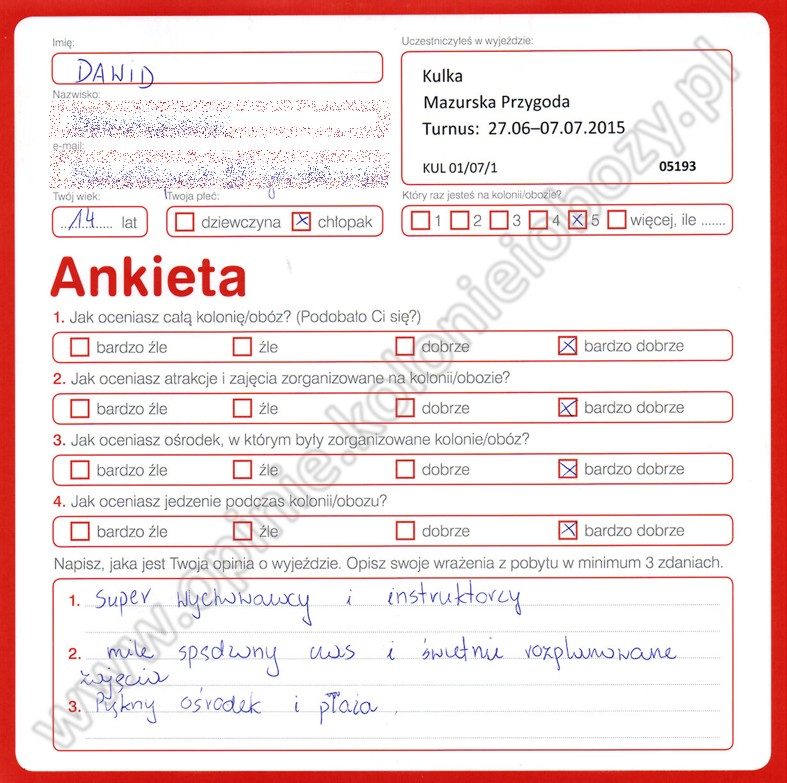 Imię:
DAWID
Nazwisko:
e-mail:
Twój wiek:
14 lat
Twoja płeć:
dziewczyna chłopak
Uczestniczyłeś w wyjeździe:
Kulka
Mazurska Przygoda
Turnus: 27.06–07.07.2015
KUL 01/07/1 05193
Który raz jesteś na kolonii/obozie?
1 2 3 4 5 więcej, ile .......
Ankieta
1. Jak oceniasz całą kolonię/obóz? (Podobało Ci się?)
bardzo źle źle dobrze bardzo dobrze
2. Jak oceniasz atrakcje i zajęcia zorganizowane na kolonii/obozie?
bardzo źle źle dobrze bardzo dobrze
3. Jak oceniasz ośrodek, w którym były zorganizowane kolonie/obóz?
bardzo źle źle dobrze bardzo dobrze
4. Jak oceniasz jedzenie podczas kolonii/obozu?
bardzo źle źle dobrze bardzo dobrze
Napisz, jaka jest Twoja opinia o wyjeździe. Opisz swoje wrażenia z pobytu w minimum 3 zdaniach.
1. Super wychowawcy i instruktorzy
2. mile spędzony czas i świetnie rozplanowane
zajęcia
3. Piękny ośrodek i plaża.
www.opinie.kolonieiobozy.pl